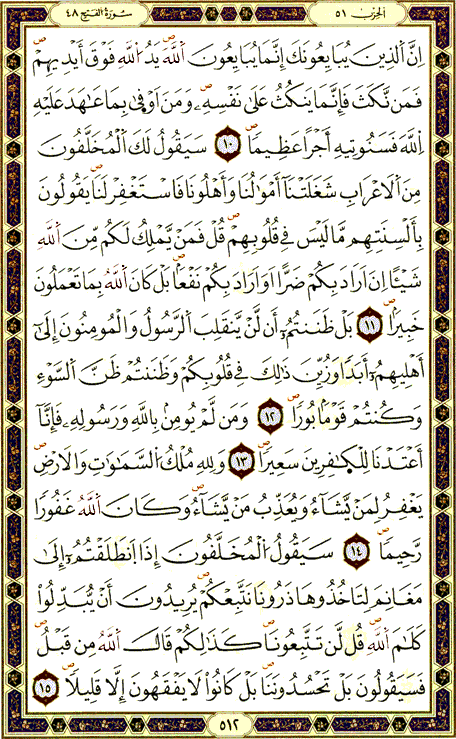 الحزب ٥١
سورة الفتح ٤٨
اِنَّ اَ۬لذِينَ يُبَايِعُونَكَ إِنَّمَا يُبَايِعُونَ اَ۬للَّهَ يَدُ اُ۬للَّهِ فَوْقَ أَيْدِيهِمْ
فَمَن نَّكَثَ فَإِنَّمَا يَنكُثُ عَلَىٰ نَفْسِهِۦ وَمَنَ اَوْفىٰ بِمَا عَٰهَدَ عَلَيْهِ
اِ۬للَّهَ فَسَنُوتِيهِ أَجْراً عَظِيماً ١٠ سَيَقُولُ لَكَ اَ۬لْمُخَلَّفُونَ
مِنَ اَ۬لَاعْرَابِ شَغَلَتْنَآ أَمْوَٰلُنَا وَأَهْلُونَا فَاسْتَغْفِرْ لَنَا يَقُولُونَ
بِأَلْسِنَتِهِم مَّا لَيْسَ فِے قُلُوبِهِمْ قُلْ فَمَنْ يَّمْلِكُ لَكُم مِّنَ اَ۬للَّهِ
شَيْـٔاً اِنَ اَرَادَ بِكُمْ ضَرّاً اَوَ اَرَادَ بِكُمْ نَفْعاً بَلْ كَانَ اَ۬للَّهُ بِمَا تَعْمَلُونَ
خَبِيراً ١١ بَلْ ظَنَنتُمُۥٓ أَن لَّنْ يَّنقَلِبَ اَ۬لرَّسُولُ وَالْمُومِنُونَ إِلَىٰٓ
أَهْلِيهِمُۥٓ أَبَداً وَزُيِّنَ ذَٰلِكَ فِے قُلُوبِكُمْ وَظَنَنتُمْ ظَنَّ اَ۬لسَّوْءِ
وَكُنتُمْ قَوْماَۢ بُوراً ١٢ وَمَن لَّمْ يُومِنۢ بِاللَّهِ وَرَسُولِهِۦ فَإِنَّآ
أَعْتَدْنَا لِلْكَٰفِرِينَ سَعِيراً ١٣ وَلِلهِ مُلْكُ اُ۬لسَّمَٰوَٰتِ وَالَارْضِ
يَغْفِرُ لِمَنْ يَّشَآءُ وَيُعَذِّبُ مَنْ يَّشَآءُ وَكَانَ اَ۬للَّهُ غَفُوراً
رَّحِيماً ١٤ سَيَقُولُ اُ۬لْمُخَلَّفُونَ إِذَا اَ۪نطَلَقْتُمُۥٓ إِلَىٰ
مَغَانِمَ لِتَاخُذُوهَا ذَرُونَا نَتَّبِعْكُمْ يُرِيدُونَ أَنْ يُّبَدِّلُواْ
كَلَٰمَ اَ۬للَّهِ قُل لَّن تَتَّبِعُونَا كَذَٰلِكُمْ قَالَ اَ۬للَّهُ مِن قَبْلُ
فَسَيَقُولُونَ بَلْ تَحْسُدُونَنَا بَلْ كَانُواْ لَا يَفْقَهُونَ إِلَّا قَلِيلاً ١٥
٥١٢